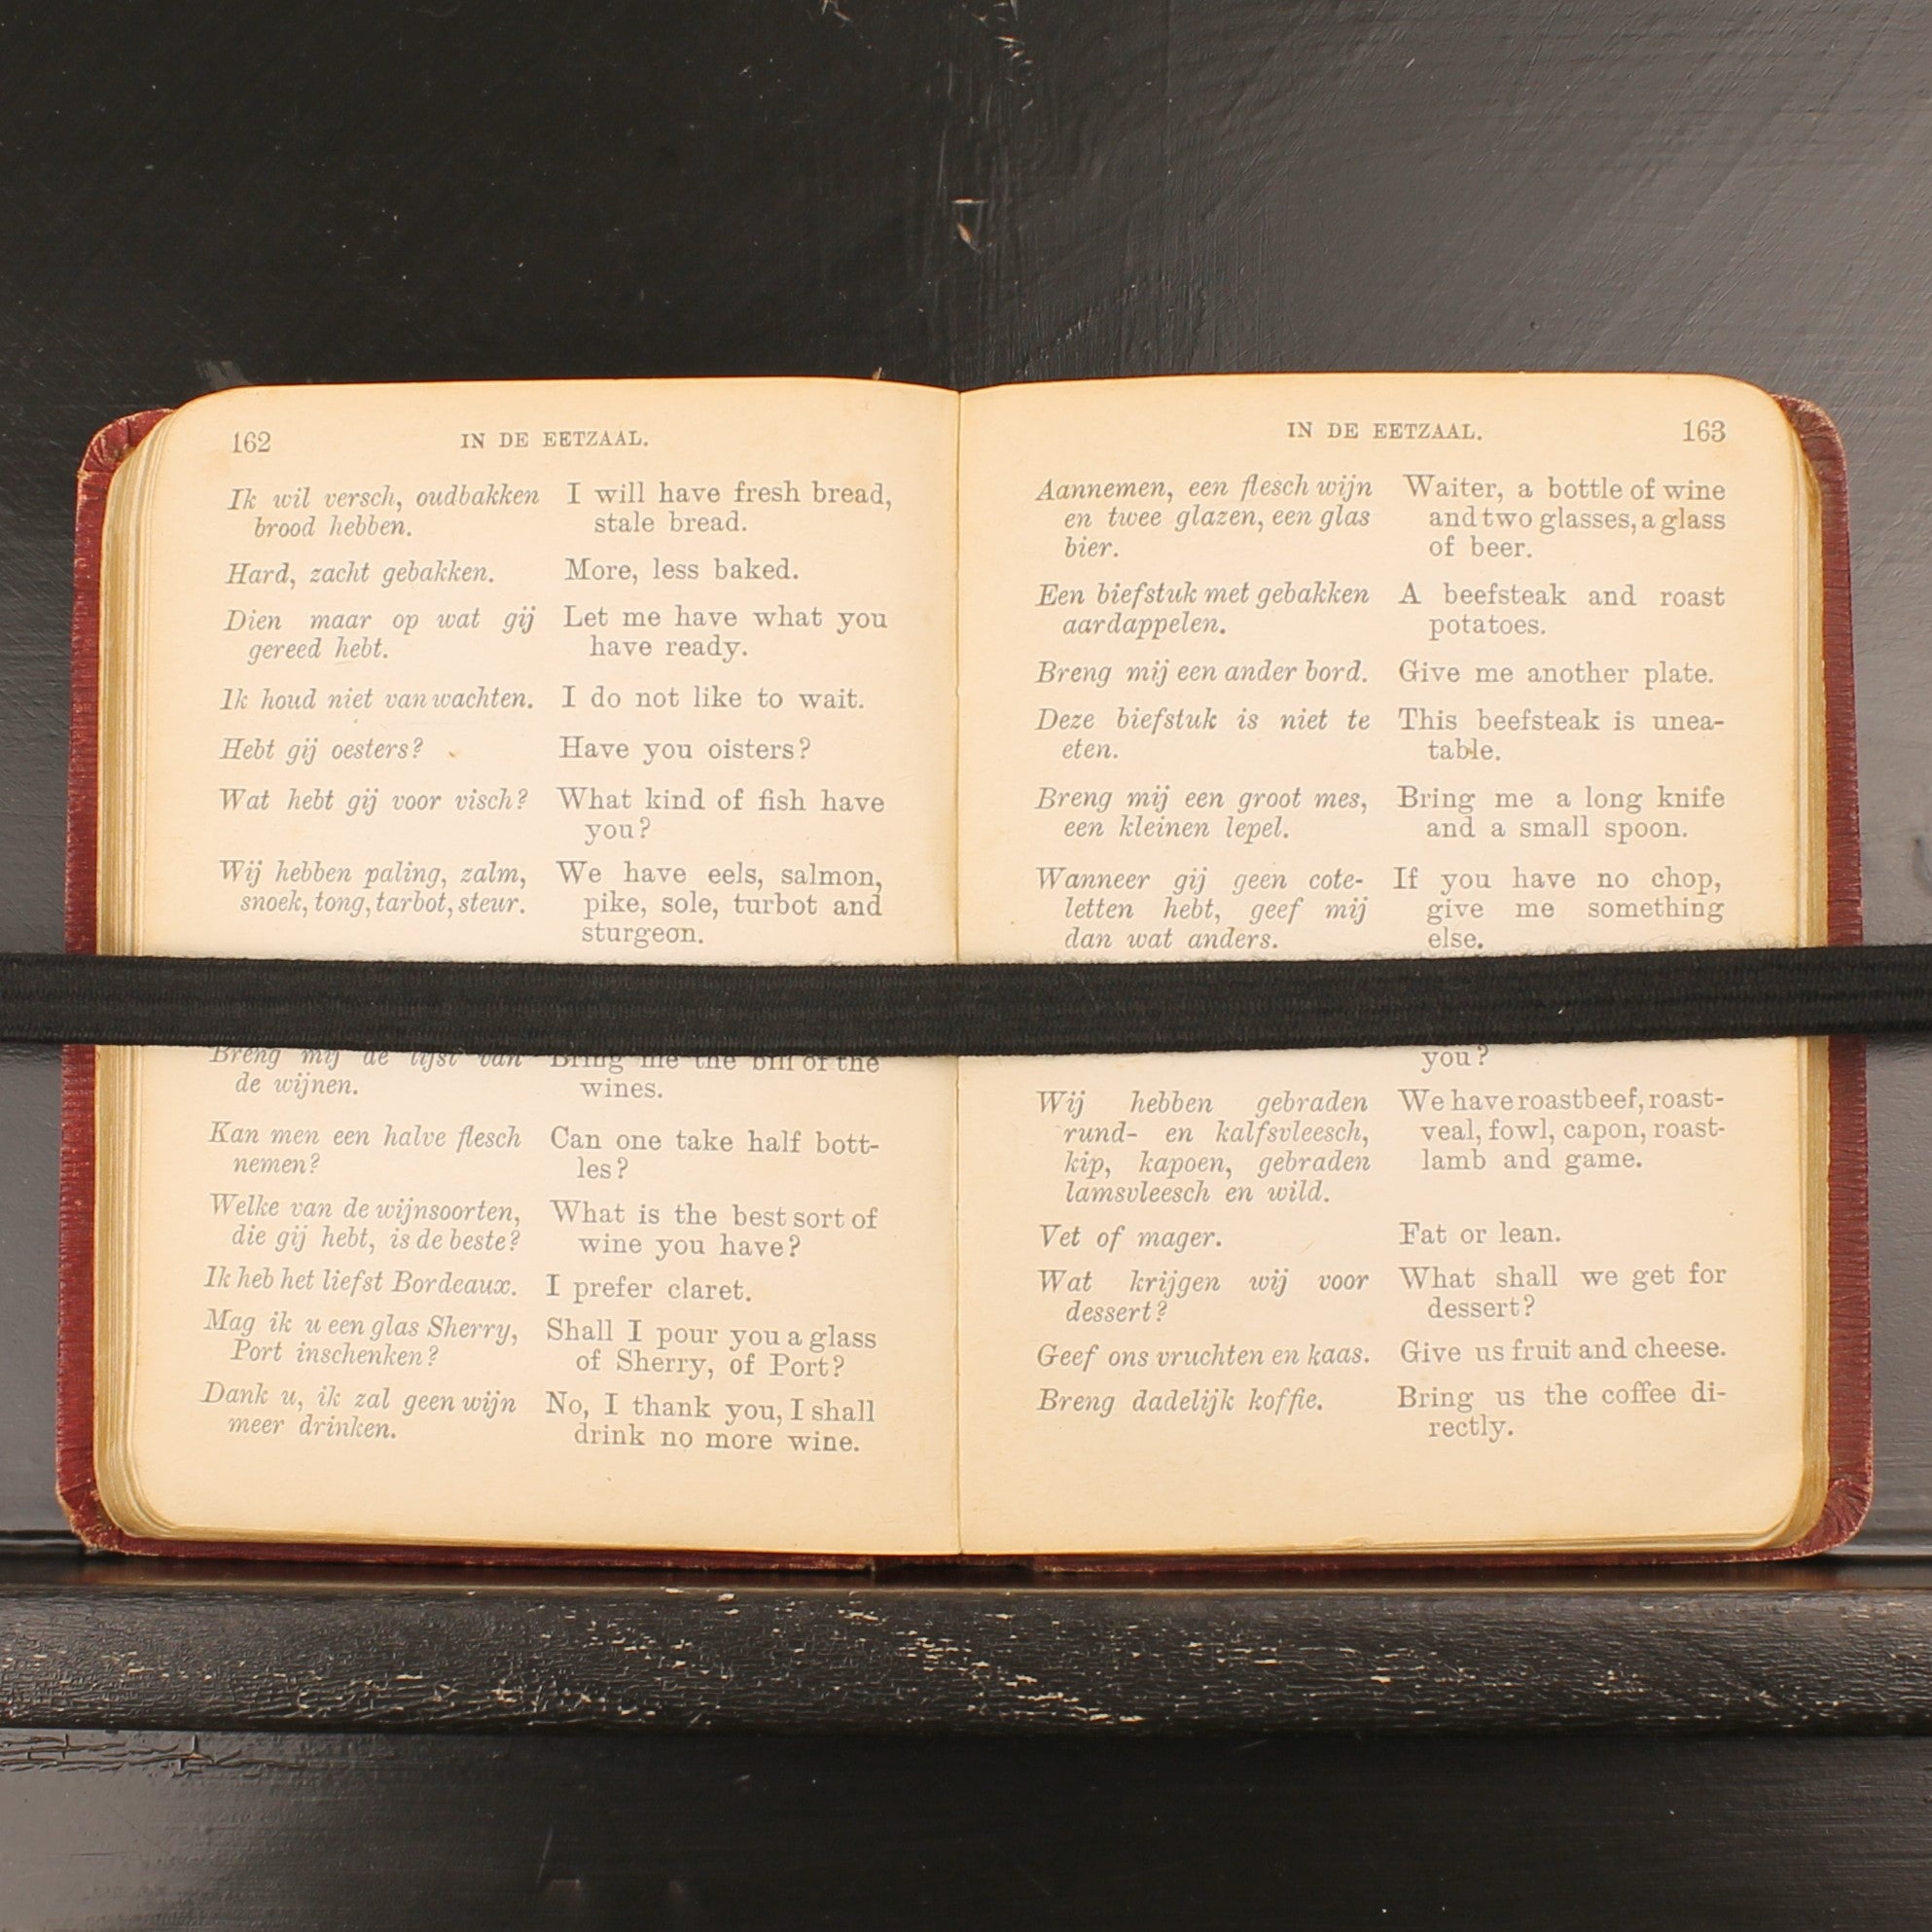 162 IN DE EETZAAL.
Ik wil versch, oudbakken
brood hebben.
I will have fresh bread,
stale bread.
Hard, zacht gebakken.
More, less baked.
Dien maar op wat gij
gereed hebt.
Let me have what you
have ready.
Ik houd niet van wachten.
I do not like to wait.
Hebt gij oesters?
Have you oisters?
Wat hebt gij voor visch?
What kind of fish have
you?
Wij hebben paling, zalm,
snoek, tong, tarbot, steur.
We have eels, salmon,
pike, sole, turbot and
sturgeon.
Breng mij de lijst van
de wijnen.
Bring me the bill of the
wines.
Kan men een halve flesch
nemen?
Can one take half bott-
les?
Welke van de wijnsoorten,
die gij hebt, is de beste?
What is the best sort of
wine you have?
Ik heb het liefst Bordeaux.
I prefer claret.
Mag ik u een glas Sherry,
Port inschenken?
Shall I pour you a glass
of Sherry, of Port?
Dank u, ik zal geen wijn
meer drinken.
No, I thank you, I shall
drink no more wine.
IN DE EETZAAL. 163
Aannemen, een flesch wijn
en twee glazen, een glas
bier.
Waiter, a bottle of wine
and two glasses, a glass
of beer.
Een biefstuk met gebakken
aardappelen.
A beefsteak and roast
potatoes.
Breng mij een ander bord.
Give me another plate.
Deze biefstuk is niet te
eten.
This beefsteak is unea-
table.
Breng mij een groot mes,
een kleinen lepel.
Bring me a long knife
and a small spoon.
Wanneer gij geen cote-
letten hebt, geef mij
dan wat anders.
If you have no chop,
give me something
else.
you?
Wij hebben gebraden
rund- en kalfsvleesch,
kip, kapoen, gebraden
lamsvleesch en wild.
We have roastbeef, roast-
veal, fowl, capon, roast-
lamb and game.
Vet of mager.
Fat or lean.
Wat krijgen wij voor
dessert?
What shall we get for
dessert?
Geef ons vruchten en kaas.
Give us fruit and cheese.
Breng dadelijk koffie.
Bring us the coffee di-
rectly.